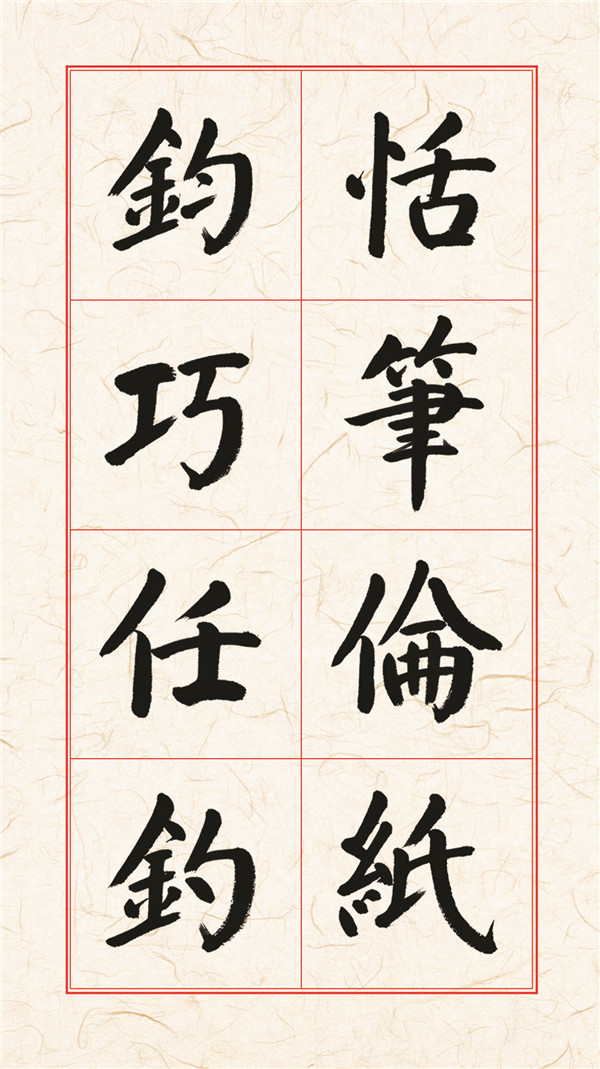 恬筆倫紙
鈞巧任釣